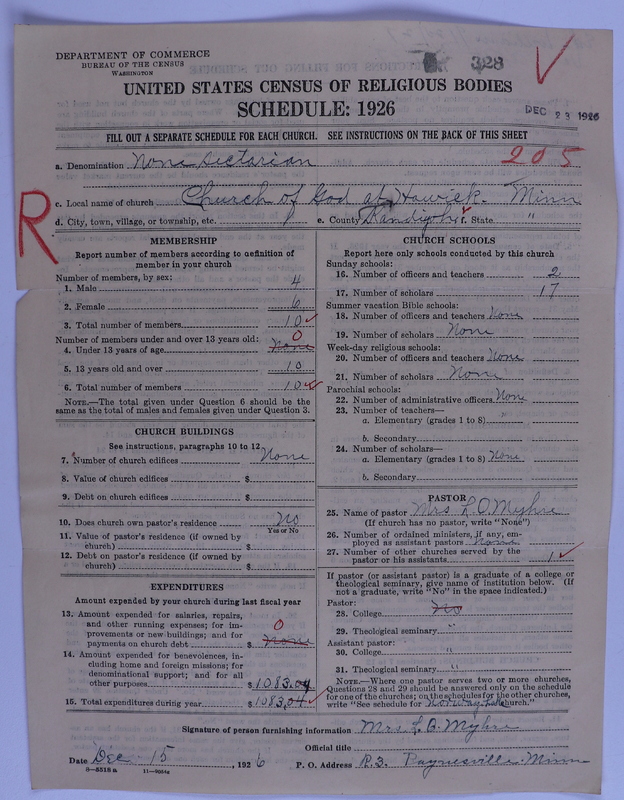 DEPARTMENT OF COMMERCE
BUREAU OF THE CENSUS
WASHINGTON
328
UNITED STATES CENSUS OF RELIGIOUS BODIES
SCHEDULE: 1926
DEC 23 1926
FILL OUT A SEPARATE SCHEDULE FOR EACH CHURCH. SEE INSTRUCTIONS ON THE BACK OF THIS SHEET
a. Denomination None Sectarian
205
c. Local name of church Church of God at Hawick. Minn
d. City, town, village, or township, etc. e. County Kandiyohi f. State "
R
MEMBERSHIP
Report number of members according to definition of
member in your church
Number of members, by sex:
1. Male 4
2. Female 6
3. Total number of members 10
Number of members under and over 13 years old: 0
4. Under 13 years of age None
5. 13 years old and over 10
6. Total number of members 10
NOTE.—The total given under Question 6 should be the
same as the total of males and females given under Question 3.
CHURCH BUILDINGS
See instructions, paragraphs 10 to 12
7. Number of church edifices None
8. Value of church edifices $
9. Debt on church edifices $
10. Does church own pastor's residence No
Yes or No
11. Value of pastor's residence (if owned by
church) $
12. Debt on pastor's residence (if owned by
church) $
EXPENDITURES
Amount expended by your church during last fiscal year
13. Amount expended for salaries, repairs,
and other running expenses; for im- 0
provements or new buildings; and for
payments on church debt $ None
14. Amount expended for benevolences, in-
cluding home and foreign missions; for
denominational support; and for all
other purposes $ 1083.04
15. Total expenditures during year $ 1083.04
CHURCH SCHOOLS
Report here only schools conducted by this church
Sunday schools:
16. Number of officers and teachers 2
17. Number of scholars 17
Summer vacation Bible schools:
18. Number of officers and teachers None
19. Number of scholars None
Week-day religious schools:
20. Number of officers and teachers None
21. Number of scholars None
Parochial schools:
22. Number of administrative officers None
23. Number of teachers—
a. Elementary (grades 1 to 8)
b. Secondary
24. Number of scholars—
a. Elementary (grades 1 to 8) None
b. Secondary
PASTOR
25. Name of pastor Mrs. L. O. Myhre
(If church has no pastor, write "None")
26. Number of ordained ministers, if any, em-
ployed as assistant pastors None
27. Number of other churches served by the
pastor or his assistants 1
If pastor (or assistant pastor) is a graduate of a college or
theological seminary, give name of institution below. (If
not a graduate, write "No" in the space indicated.)
Pastor:
28. College No
29. Theological seminary "
Assistant pastor:
30. College "
31. Theological seminary "
NOTE.—Where one pastor serves two or more churches,
Questions 28 and 29 should be answered only on the schedule
for one of the churches; on the schedules for the other churches,
write "See schedule for Norway Lake church."
Signature of person furnishing information Mrs. L. O. Myhre
Official title
Date Dec 15, 1926 P. O. Address R. 3. Paynesville. Minn
8—5518 a 11—9054a